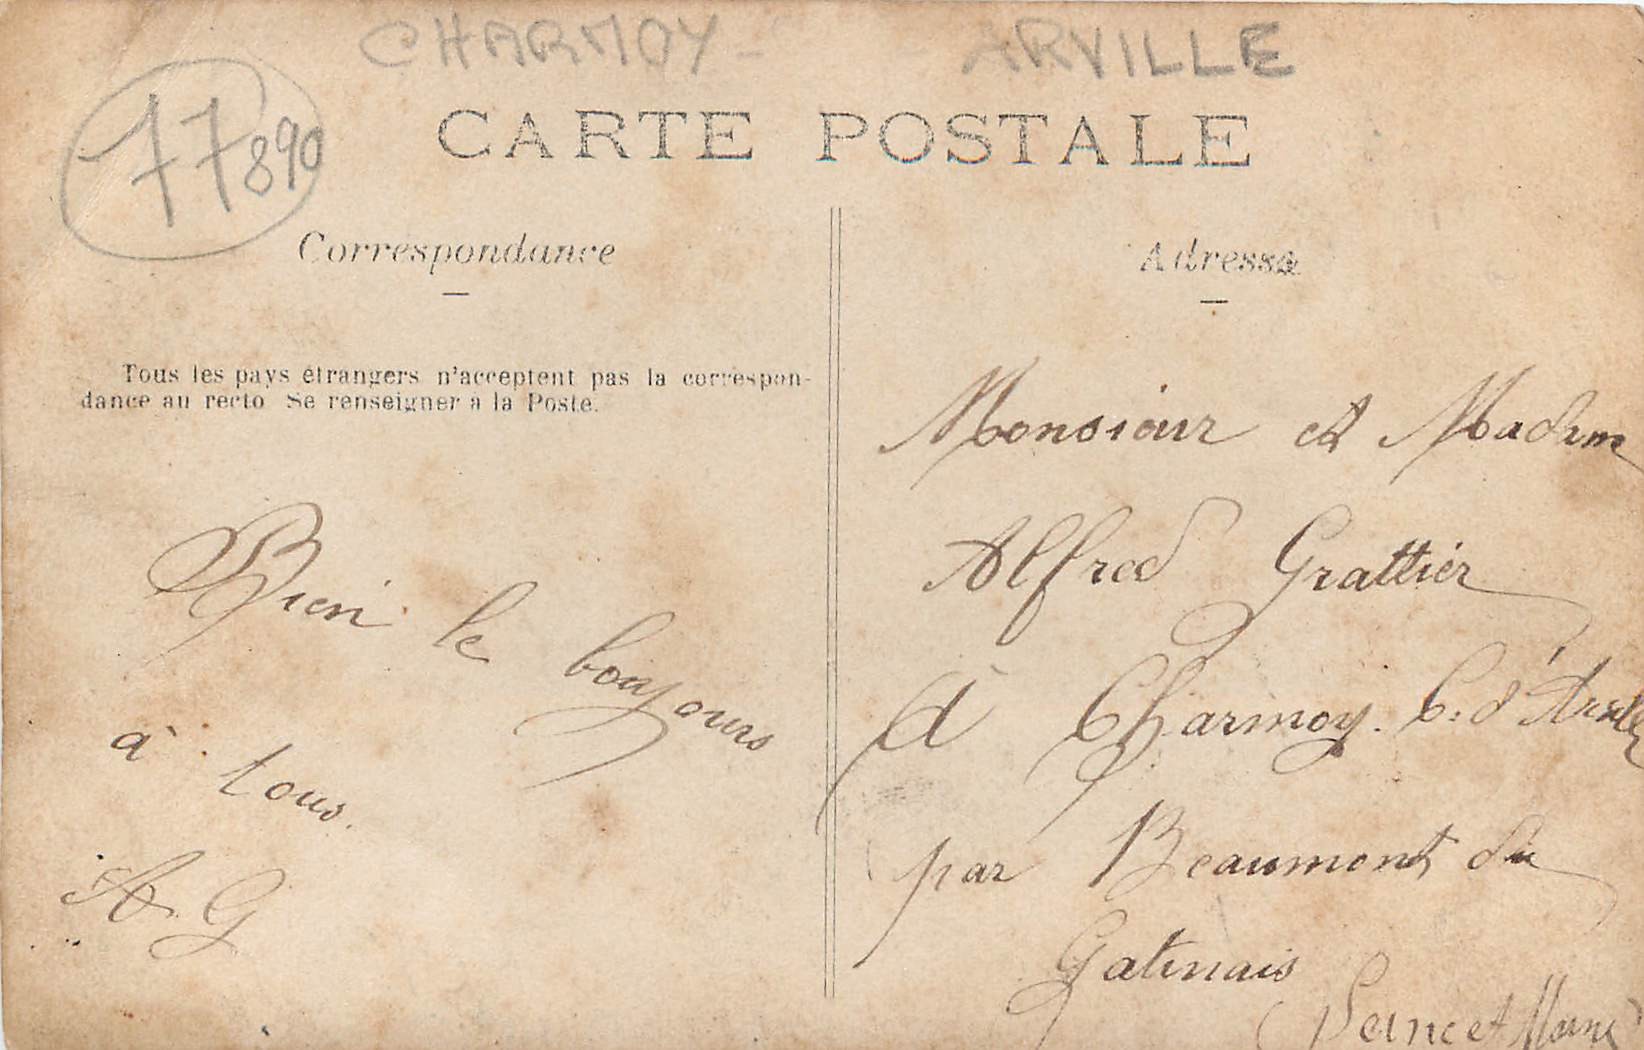 CHARMOY - ARVILLE
77890
CARTE POSTALE
Correspondance
Tous les pays étrangers n'acceptent pas la correspon-
dance au recto Se renseigner à la Poste.
Bien le boujours
à tous.
A. G
Adresse
Monsieur et Madame
Alfred Grattier
à Charmoy. C. d'Arville
par Beaumont du
Gatinais
(Seine et Marne)